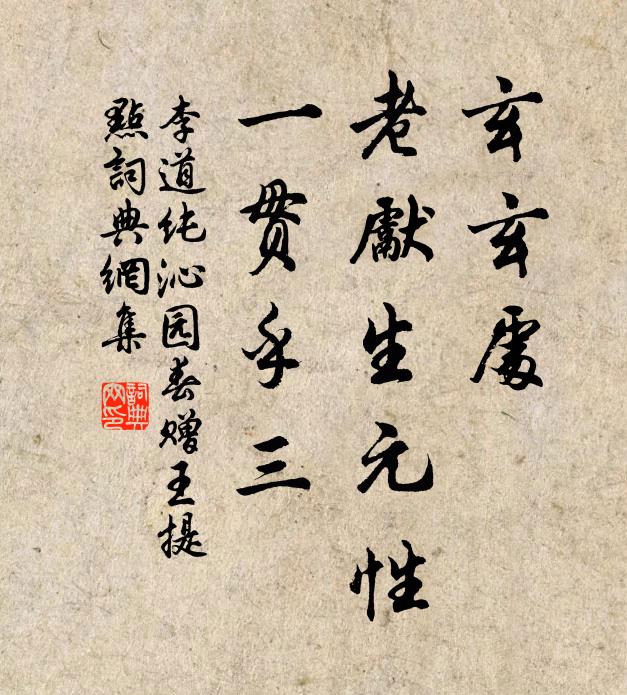 玄玄處
老獻生元性
一贯乎三
李道纯沁园春赠王提
點詞典網集
詞典
网印